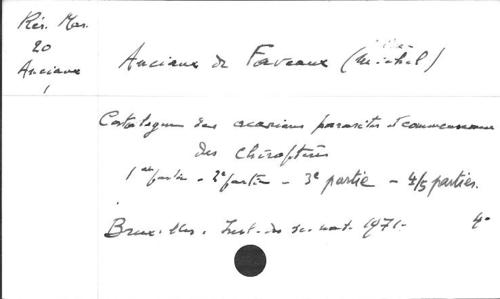 Rés. Mar.
20
Anciaux
1
Anciaux de Faveaux (Michel)
Catalogue des acariens parasites et commensaux
des Chiroptères
1ère partie - 2e partie - 3e partie - 4/5 parties.
Bruxelles. Inst. des sc. nat. 1971. 4°